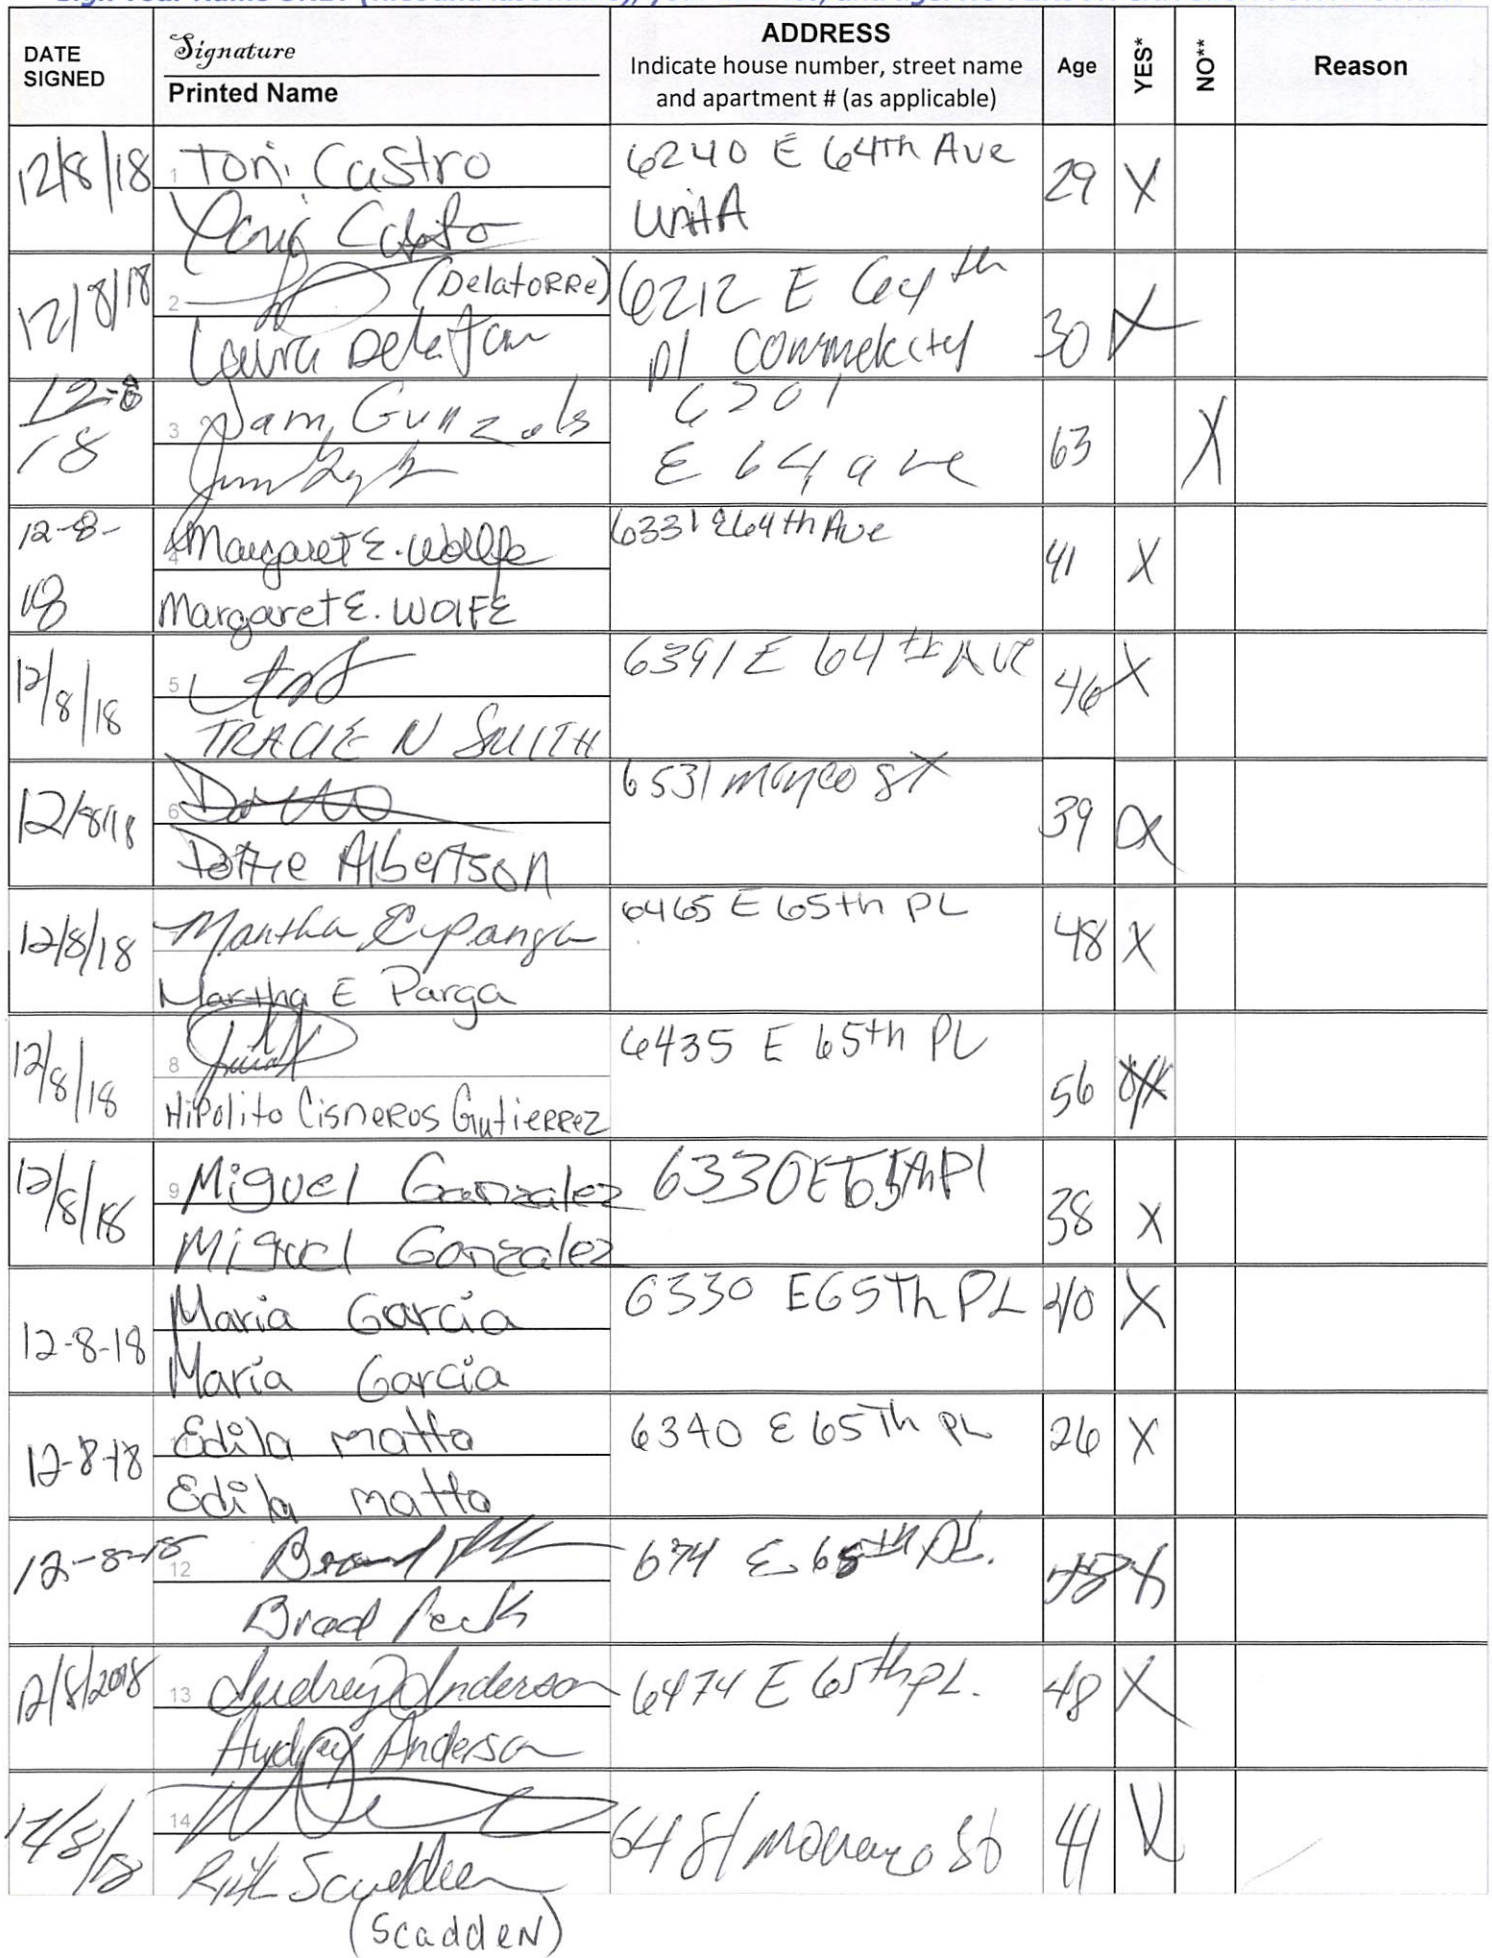 DATE SIGNED
Signature
Printed Name
ADDRESS
Indicate house number, street name
and apartment # (as applicable)
Age
YES*
NO**
Reason
12/8/18
1 Toni Castro
6240 E 64th Ave
Unit A
29 X
12/8/18
2 (Delatorre)
Laura
6212 E 64th
pl
30 X
12-8
18
3 Sam
6201
E 64 ave
63 X
12-8-
18
4 Margaret E. Wolfe
Margaret E. WOlFE
6331 E 64th Ave
41 X
12/8/18
5
TRACIE N SMITH
6391 E 64th AVE
46 X
12/8/18
6
Dottie Albertson
6531 st
39 X
12/8/18
Martha E Parga
Martha E Parga
6465 E 65th PL
48 X
12/8/18
8
Hipolito Cisneros Gutierrez
6435 E 65th PL
56
12/8/18
9 Miguel Gonzalez
Miguel Gonzalez
6330 E 65th Pl
38 X
12-8-18
Maria Garcia
Maria Garcia
6330 E 65Th PL
40 X
12-8-18
Edila matta
Edila matta
6340 E 65Th PL
26 X
12-8-18
12 Brad
Brad Peck
674 E 65th PL.
X
12/8/2018
13 Audrey Anderson
Audrey Anderson
6474 E 65th PL.
48 X
12/8/18
14
(Scadden)
6481
41 X